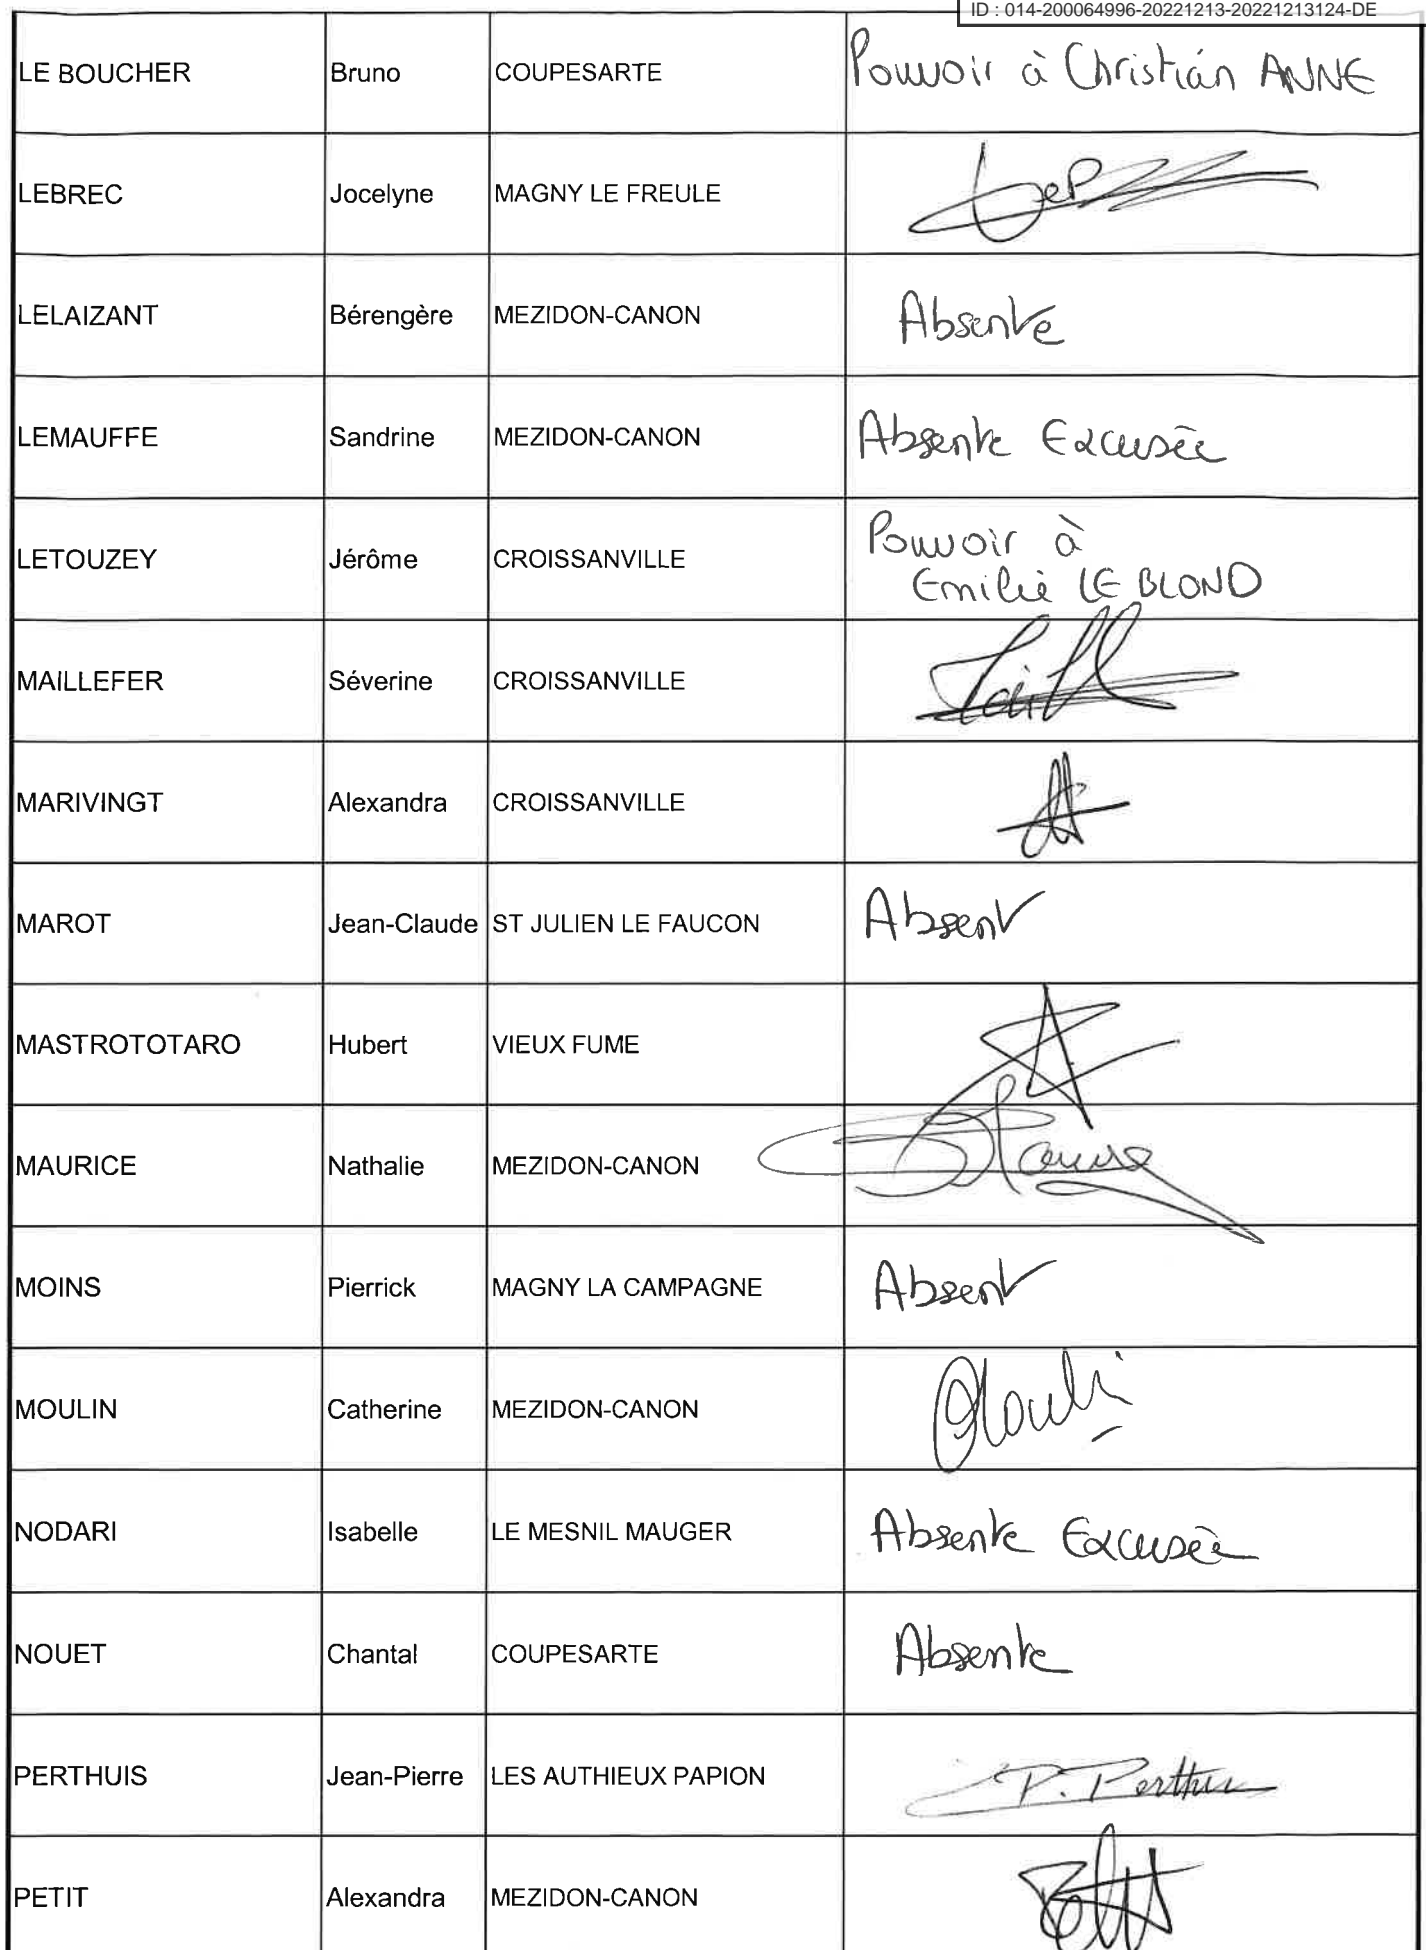 ID : 014-200064996-20221213-20221213124-DE
LE BOUCHER Bruno COUPESARTE Pouvoir à Christian ANNE
LEBREC Jocelyne MAGNY LE FREULE
LELAIZANT Bérengère MEZIDON-CANON Absente
LEMAUFFE Sandrine MEZIDON-CANON Absente Excusée
LETOUZEY Jérôme CROISSANVILLE Pouvoir à
Emilie LE BLOND
MAILLEFER Séverine CROISSANVILLE
MARIVINGT Alexandra CROISSANVILLE
MAROT Jean-Claude ST JULIEN LE FAUCON Absent
MASTROTOTARO Hubert VIEUX FUME
MAURICE Nathalie MEZIDON-CANON
MOINS Pierrick MAGNY LA CAMPAGNE Absent
MOULIN Catherine MEZIDON-CANON
NODARI Isabelle LE MESNIL MAUGER Absente Excusée
NOUET Chantal COUPESARTE Absente
PERTHUIS Jean-Pierre LES AUTHIEUX PAPION
PETIT Alexandra MEZIDON-CANON